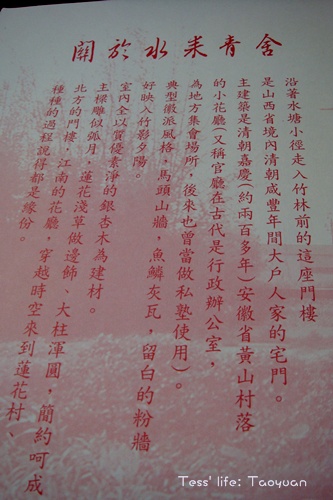 關於水來青舍
沿著水塘小徑走入竹林前的這座門樓
是山西省境內清朝咸豐年間大戶人家的宅門。
主建築是清朝嘉慶(約兩百多年)安徽省黃山村落
的小花廳(又稱官廳在古代是行政辦公室，
為地方集會場所，後來也曾當做私塾使用)。
典型徽派風格，馬頭山牆，魚鱗灰瓦，留白的粉牆
好映入竹影夕陽。
室內全以質優素淨的銀杏木為建材。
主樑雕似弧月，蓮花淺草做邊飾、大柱渾圓，簡約呵成
北方的門樓，江南的花廳，穿越時空來到蓮花村、
種種的過程說得都是緣份。
Tess' life: Taoyuan